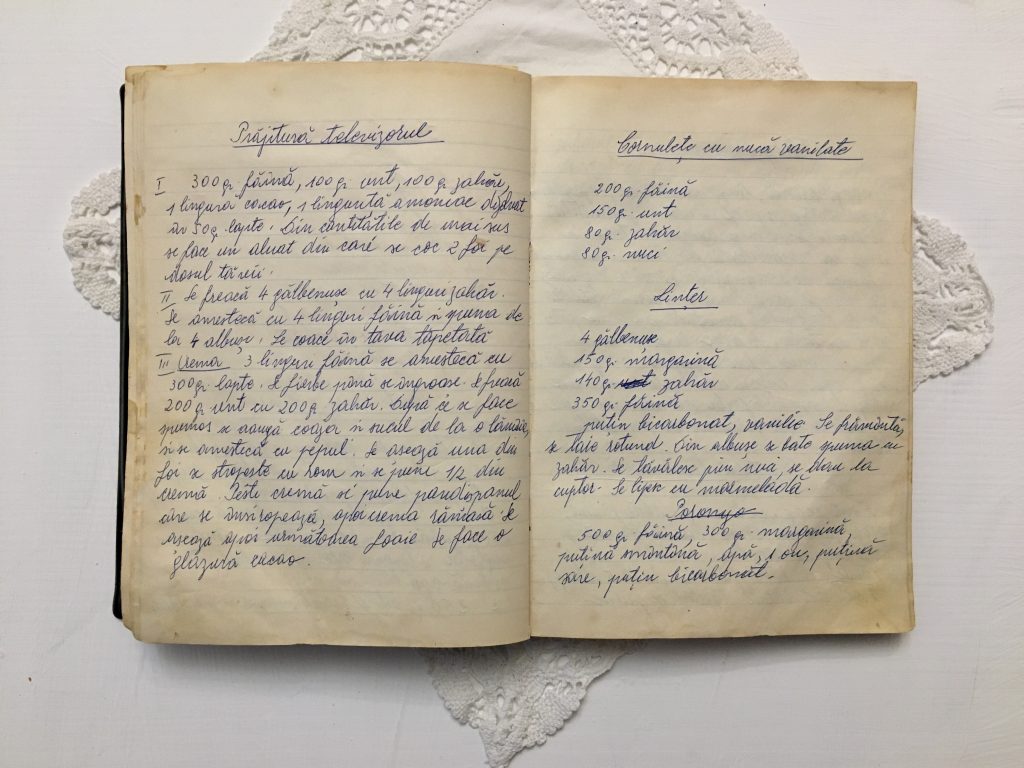 Prăjitură televizorul
I 300 gr. făină, 100 gr. unt, 100 gr. zahăr,
1 lingură cacao, 1 linguriță amoniac dizolvat
în 50 g. lapte. Din cantitățile de mai sus
se face un aluat din care se coc 2 foi pe
dosul tăvii.
II Se freacă 4 gălbenușe cu 4 linguri zahăr.
Se amestecă cu 4 linguri făină și spuma de
la 4 albușe. Se coace în tava tapetată
III Crema 3 linguri făină se amestecă cu
300 gr. lapte. Se fierbe până se îngroașe. Se freacă
200 gr. unt cu 200 gr. zahăr. După ce se face
spumos se adaugă coaja și sucul de la o lămâie,
și se amestecă cu pepul. Se așează una din
foi se stropește cu rom și se pune 1/2 din
cremă. Peste cremă se pune pandișpanul
care se însiropează, apoi crema rămasă Se
asează apoi următoarea foaie Se face o
glazură cacao.
Cornulețe cu nucă vanilate
200 gr. făină
150 g. unt
80 g. zahăr
80 g. nuci
Lințer
4 gălbenușe
150 g. margarină
140 g. unt zahăr
350 gr. făină
puțin bicarbonat, vanilie. Se frământă,
se taie rotund. Din albușe se bate spuma cu
zahăr. Se tăvălesc prin nuci, se dau la
cuptor. Se lipesc cu marmeladă.
Poronyo
500 g. făină, 300 g. margarină,
puțină smântână, apă, 1 ou, puțină
sare, puțin bicarbonat.